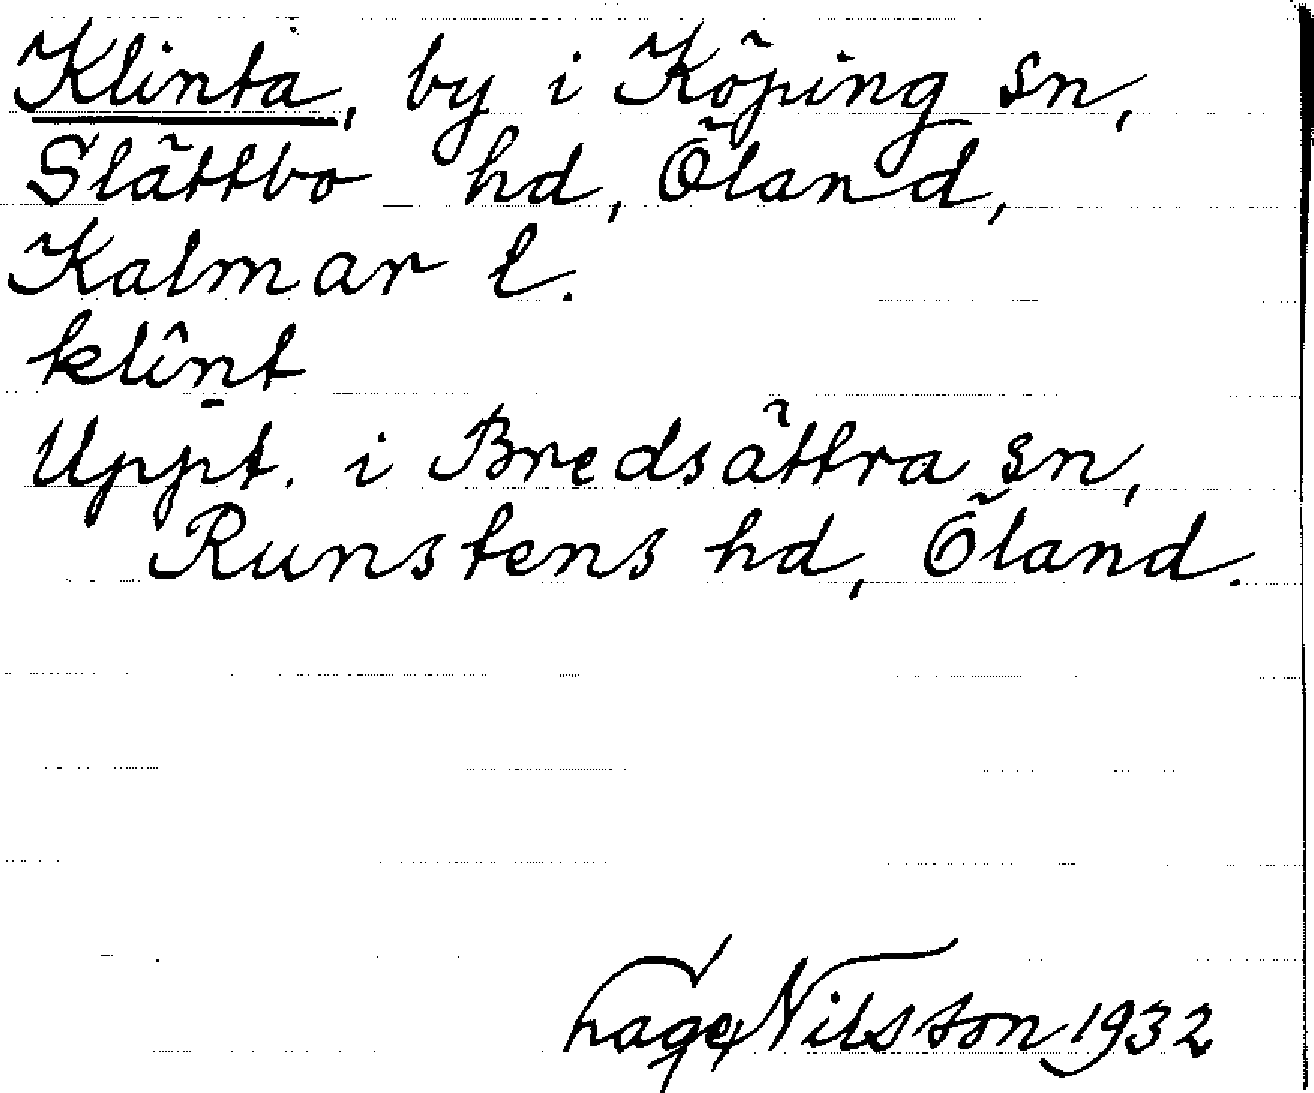 Klinta, by i Köping sn,
Slättbo hd, Öland,
Kalmar l.
klînt
Uppt. i Bredsättra sn,
Runstens hd, Öland.
Hage Nilsson 1932